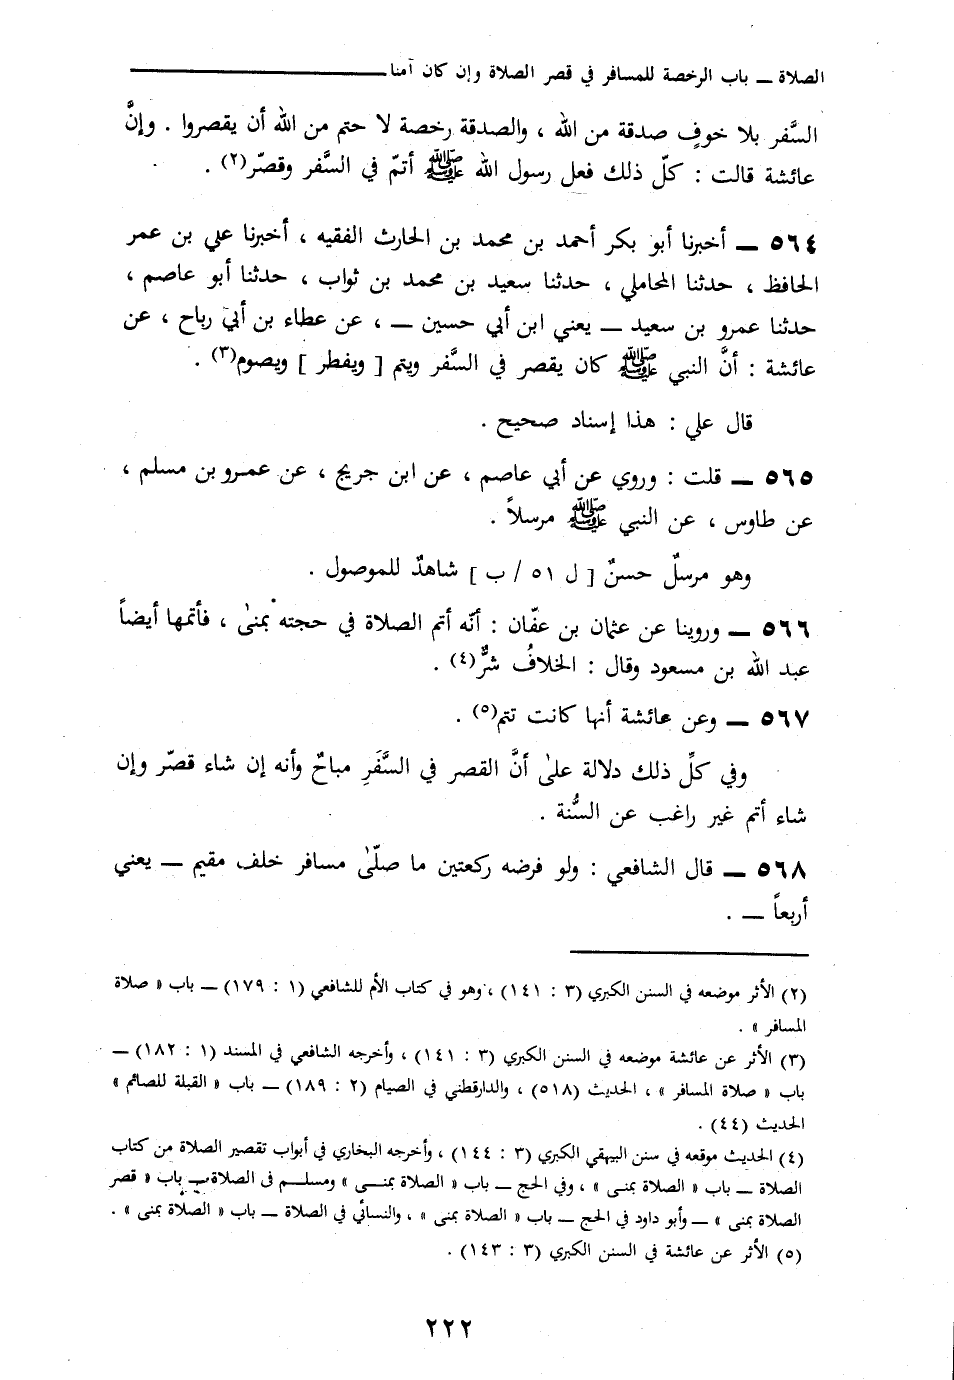 الصلاة ـ باب الرخصة للمسافر في قصر الصلاة وإن كان آمنا
السَّفر بلا خوفٍ صدقة من الله ، والصدقة رخصة لا حتم من الله أن يقصروا . وإنَّ
عائشة قالت : كلّ ذلك فعل رسول الله ﷺ أتمّ في السَّفر وقصّر(٢) .
٥٦٤ ـ أخبرنا أبو بكر أحمد بن محمد بن الحارث الفقيه ، أخبرنا علي بن عمر
الحافظ ، حدثنا المحاملي ، حدثنا سعيد بن محمد بن ثواب ، حدثنا أبو عاصم ،
حدثنا عمرو بن سعيد ـ يعني ابن أبي حسين ـ ، عن عطاء بن أبي رباح ، عن
عائشة : أنَّ النبي ﷺ كان يقصر في السَّفر ويتم [ ويفطر ] ويصوم(٣) .
قال علي : هذا إسناد صحيح .
٥٦٥ ـ قلت : وروي عن أبي عاصم ، عن ابن جريج ، عن عمرو بن مسلم ،
عن طاوس ، عن النبي ﷺ مرسلاً .
وهو مرسلٌ حسنٌ [ ل ٥١ / ب ] شاهدٌ للموصول .
٥٦٦ ـ وروينا عن عثمان بن عفّان : أنّه أتم الصلاة في حجته بمنىٰ ، فأتمها أيضاً
عبد الله بن مسعود وقال : الخلافُ شرٌّ(٤) .
٥٦٧ ـ وعن عائشة أنها كانت تتم(٥) .
وفي كلِّ ذلك دلالة علىٰ أنَّ القصر في السَّفَرِ مباحٌ وأنه إن شاء قصّر وإن
شاء أتم غير راغب عن السُّنة .
٥٦٨ ـ قال الشافعي : ولو فرضه ركعتين ما صلّىٰ مسافر خلف مقيم ـ يعني
أربعاً ـ .
(٢) الأثر موضعه في السنن الكبري (٣ : ١٤١) ، وهو في كتاب الأم للشافعي (١ : ١٧٩) ـ باب « صلاة
المسافر » .
(٣) الأثر عن عائشة موضعه في السنن الكبري (٣ : ١٤١) ، وأخرجه الشافعي في المسند (١ : ١٨٢) ـ
باب « صلاة المسافر » ، الحديث (٥١٨) ، والدارقطني في الصيام (٢ : ١٨٩) ـ باب « القبلة للصائم »
الحديث (٤٤) .
(٤) الحديث موقعه في سنن البيهقي الكبري (٣ : ١٤٤) ، وأخرجه البخاري في أبواب تقصير الصلاة من كتاب
الصلاة ـ باب « الصلاة بمنى » ، وفي الحج ـ باب « الصلاة بمنى » ومسلم في الصلاة ـ باب « قصر
الصلاة بمنى » ـ وأبو داود في الحج ـ باب « الصلاة بمنى » ، والنسائي في الصلاة ـ باب « الصلاة بمنى » .
(٥) الأثر عن عائشة في السنن الكبري (٣ : ١٤٣) .
٢٢٢